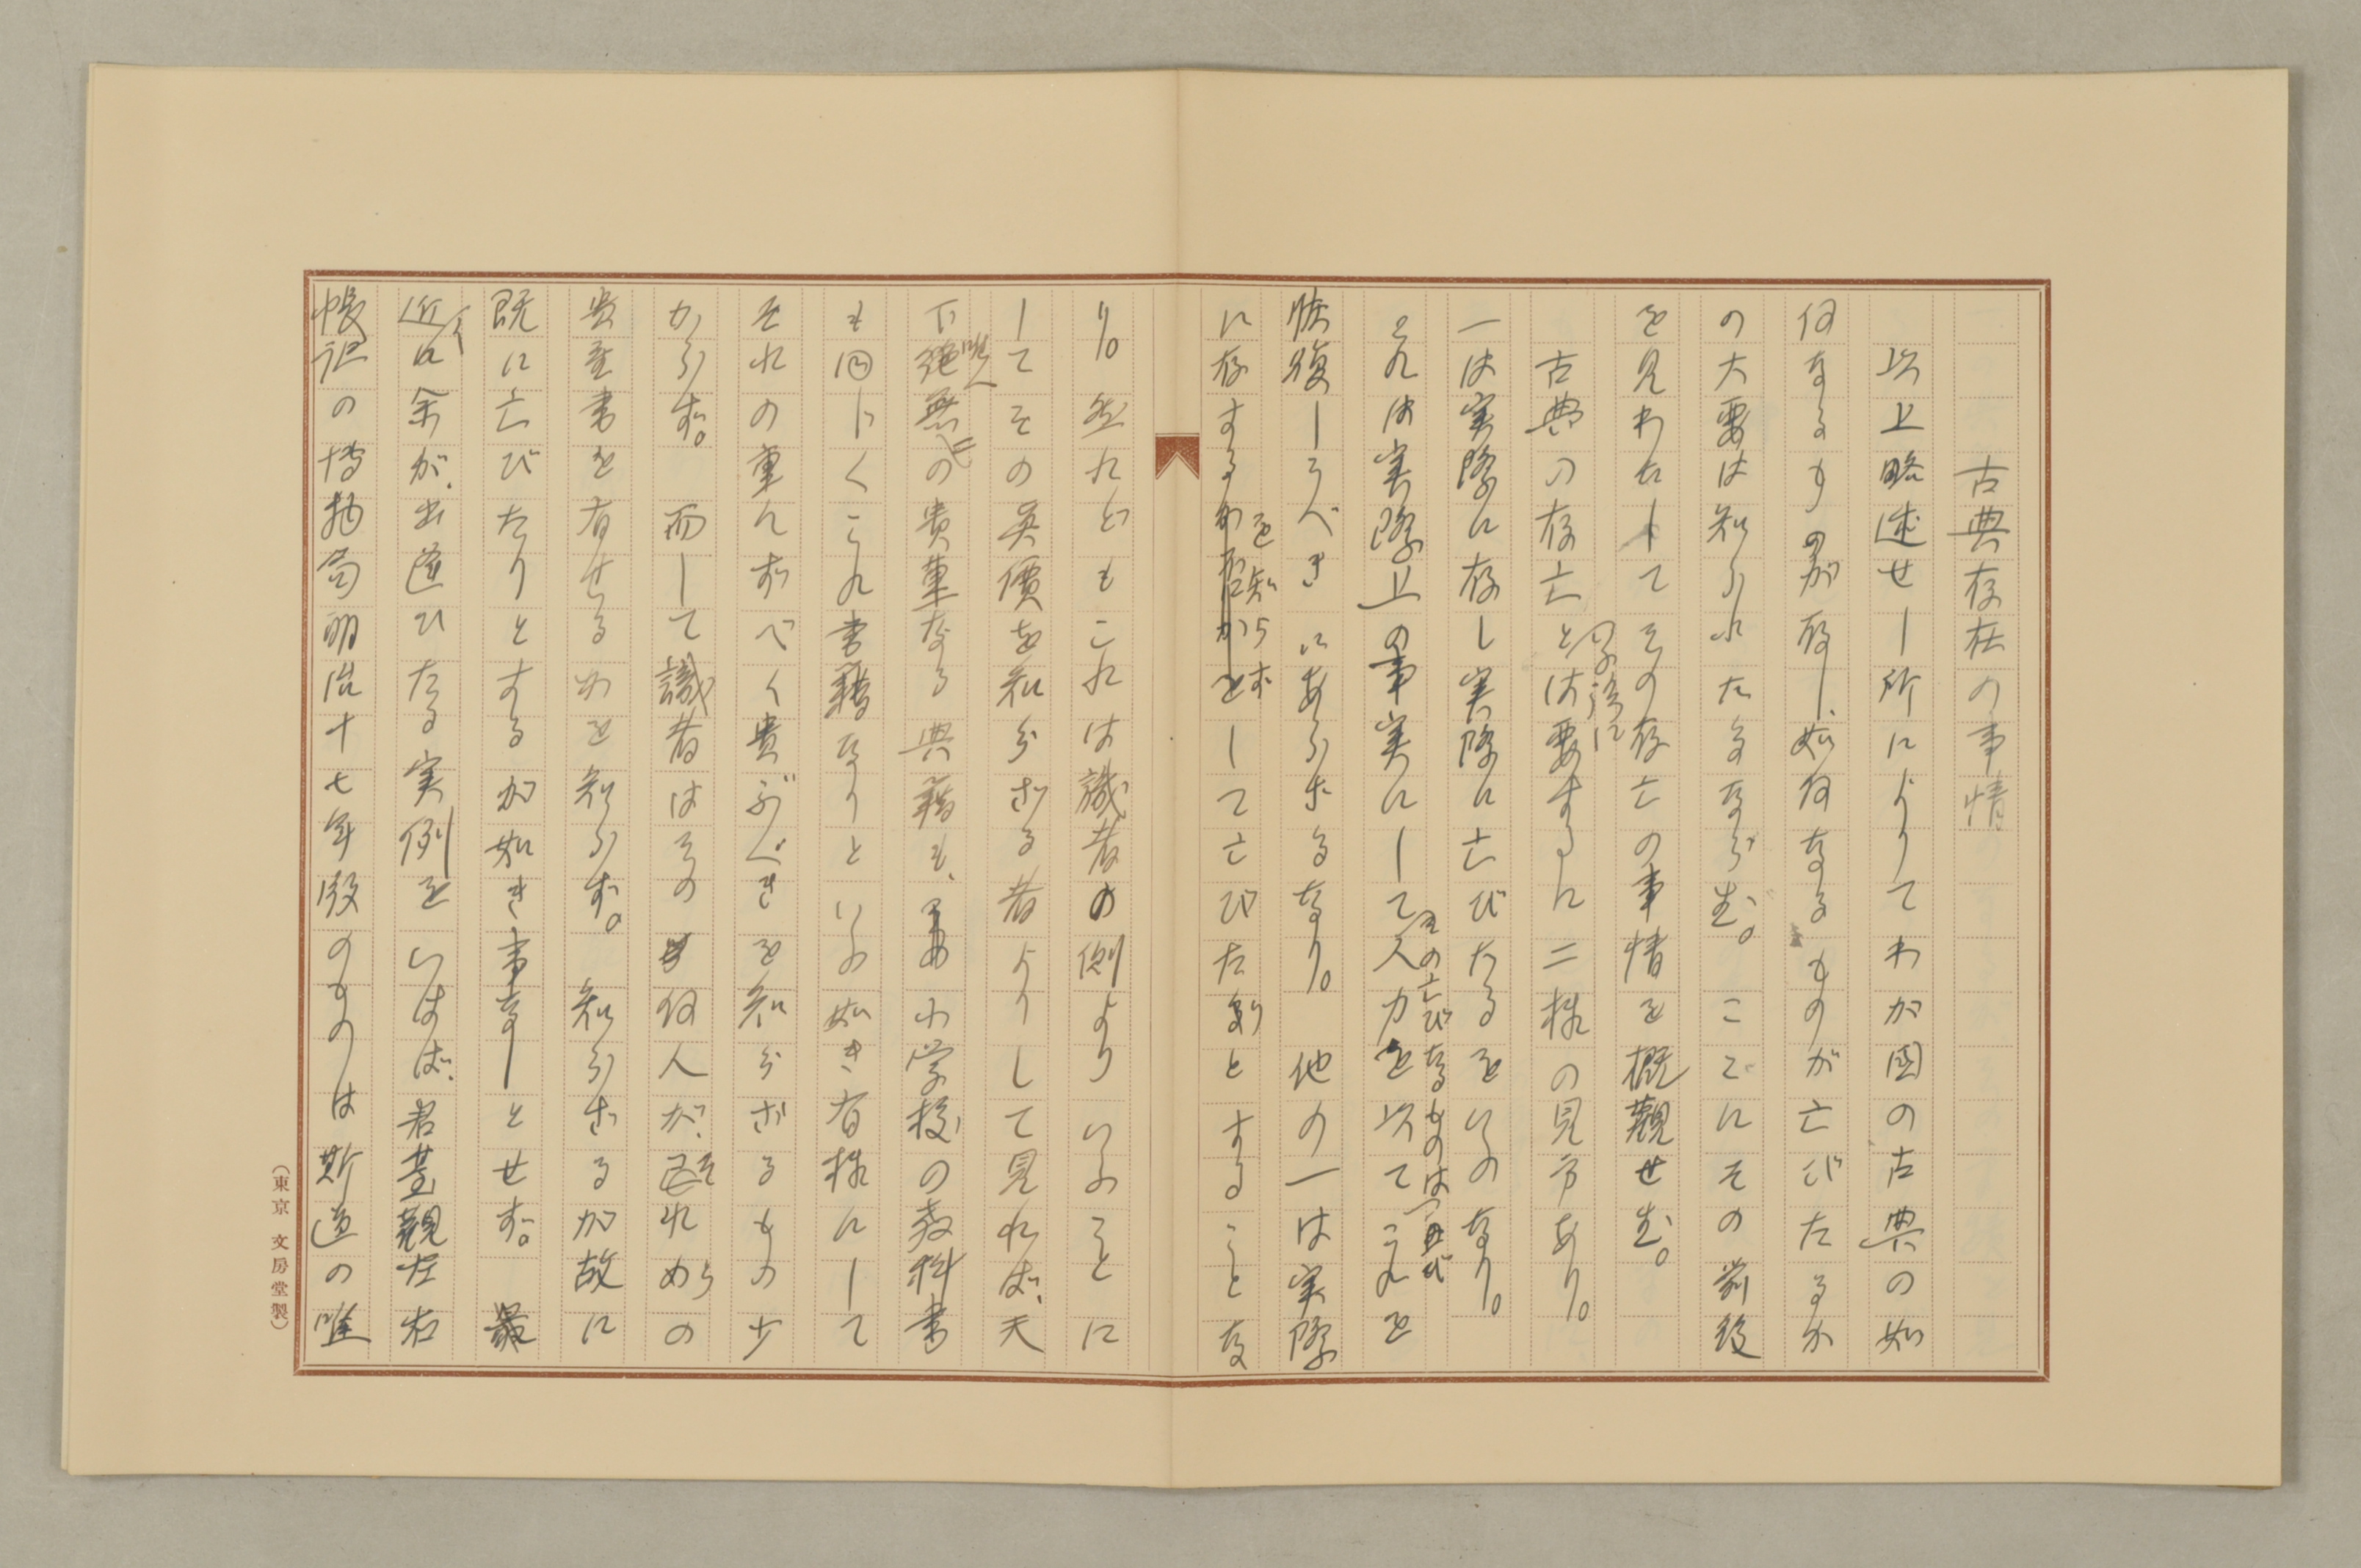 古典存在の事情
以上略述せし所によりてわが国の古典の如
何なるものが存し、如何なるものが亡びたるか
の大要は知られたるならむ。こゝにその前後
を見わたしてその存亡の事情を概観せむ。
古典の存亡とは要するに二様の見方あり。
一は実際に存し実際に亡びたるをいふなり。
これは実際上の事実にして人力を以てこれを
その亡びなるものは再び
恢復しうべきにあらざるなり。他の一は実際
に存するを知らずして亡びたりとすることな
り。然れどもこれは識者の側よりいふことに
してその真價を知らざる者よりして見れば、天
下唯一無二の貴重なる典籍も、小学校の教科書
も同じくこれ書籍なりといふ如き有様にして
それの重んずべく貴ぶべきを知らざるもの少
からず。而して識者はその何人が、それらの
貴重書を有せるかを知らず。知らざるが故に
既に亡びたりとするが如き事なしとせず。最
近に余が出遭ひたる実例をいはば、君臺觀左右
帳記の博物局明治十七年版のものは斯道の唯
(東京 文房堂製)